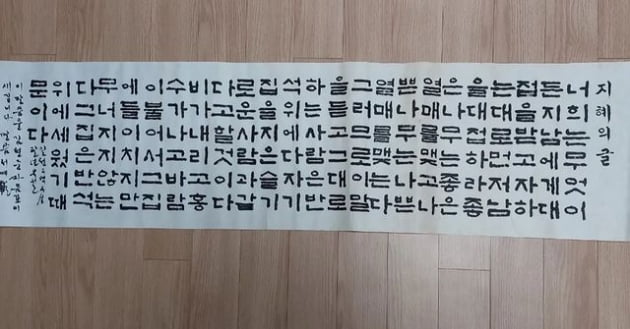 지혜의글
너희는무엇이
든지남에게대
접을받고자하
는대로먼저남
을대접하라좋
은나무는좋은
열매를맺고나
쁜나무는나쁜
열매를맺는다
그러므로이말
을듣고그대로
하는사람은반
석위에다자기
집을지은슬기
로운사람과같
다고할것이다
비가내리고홍
수가나고바람
이불어서그집
에들이치지만
무너지지않는
다그집은반석
위에세웠기때
문이다